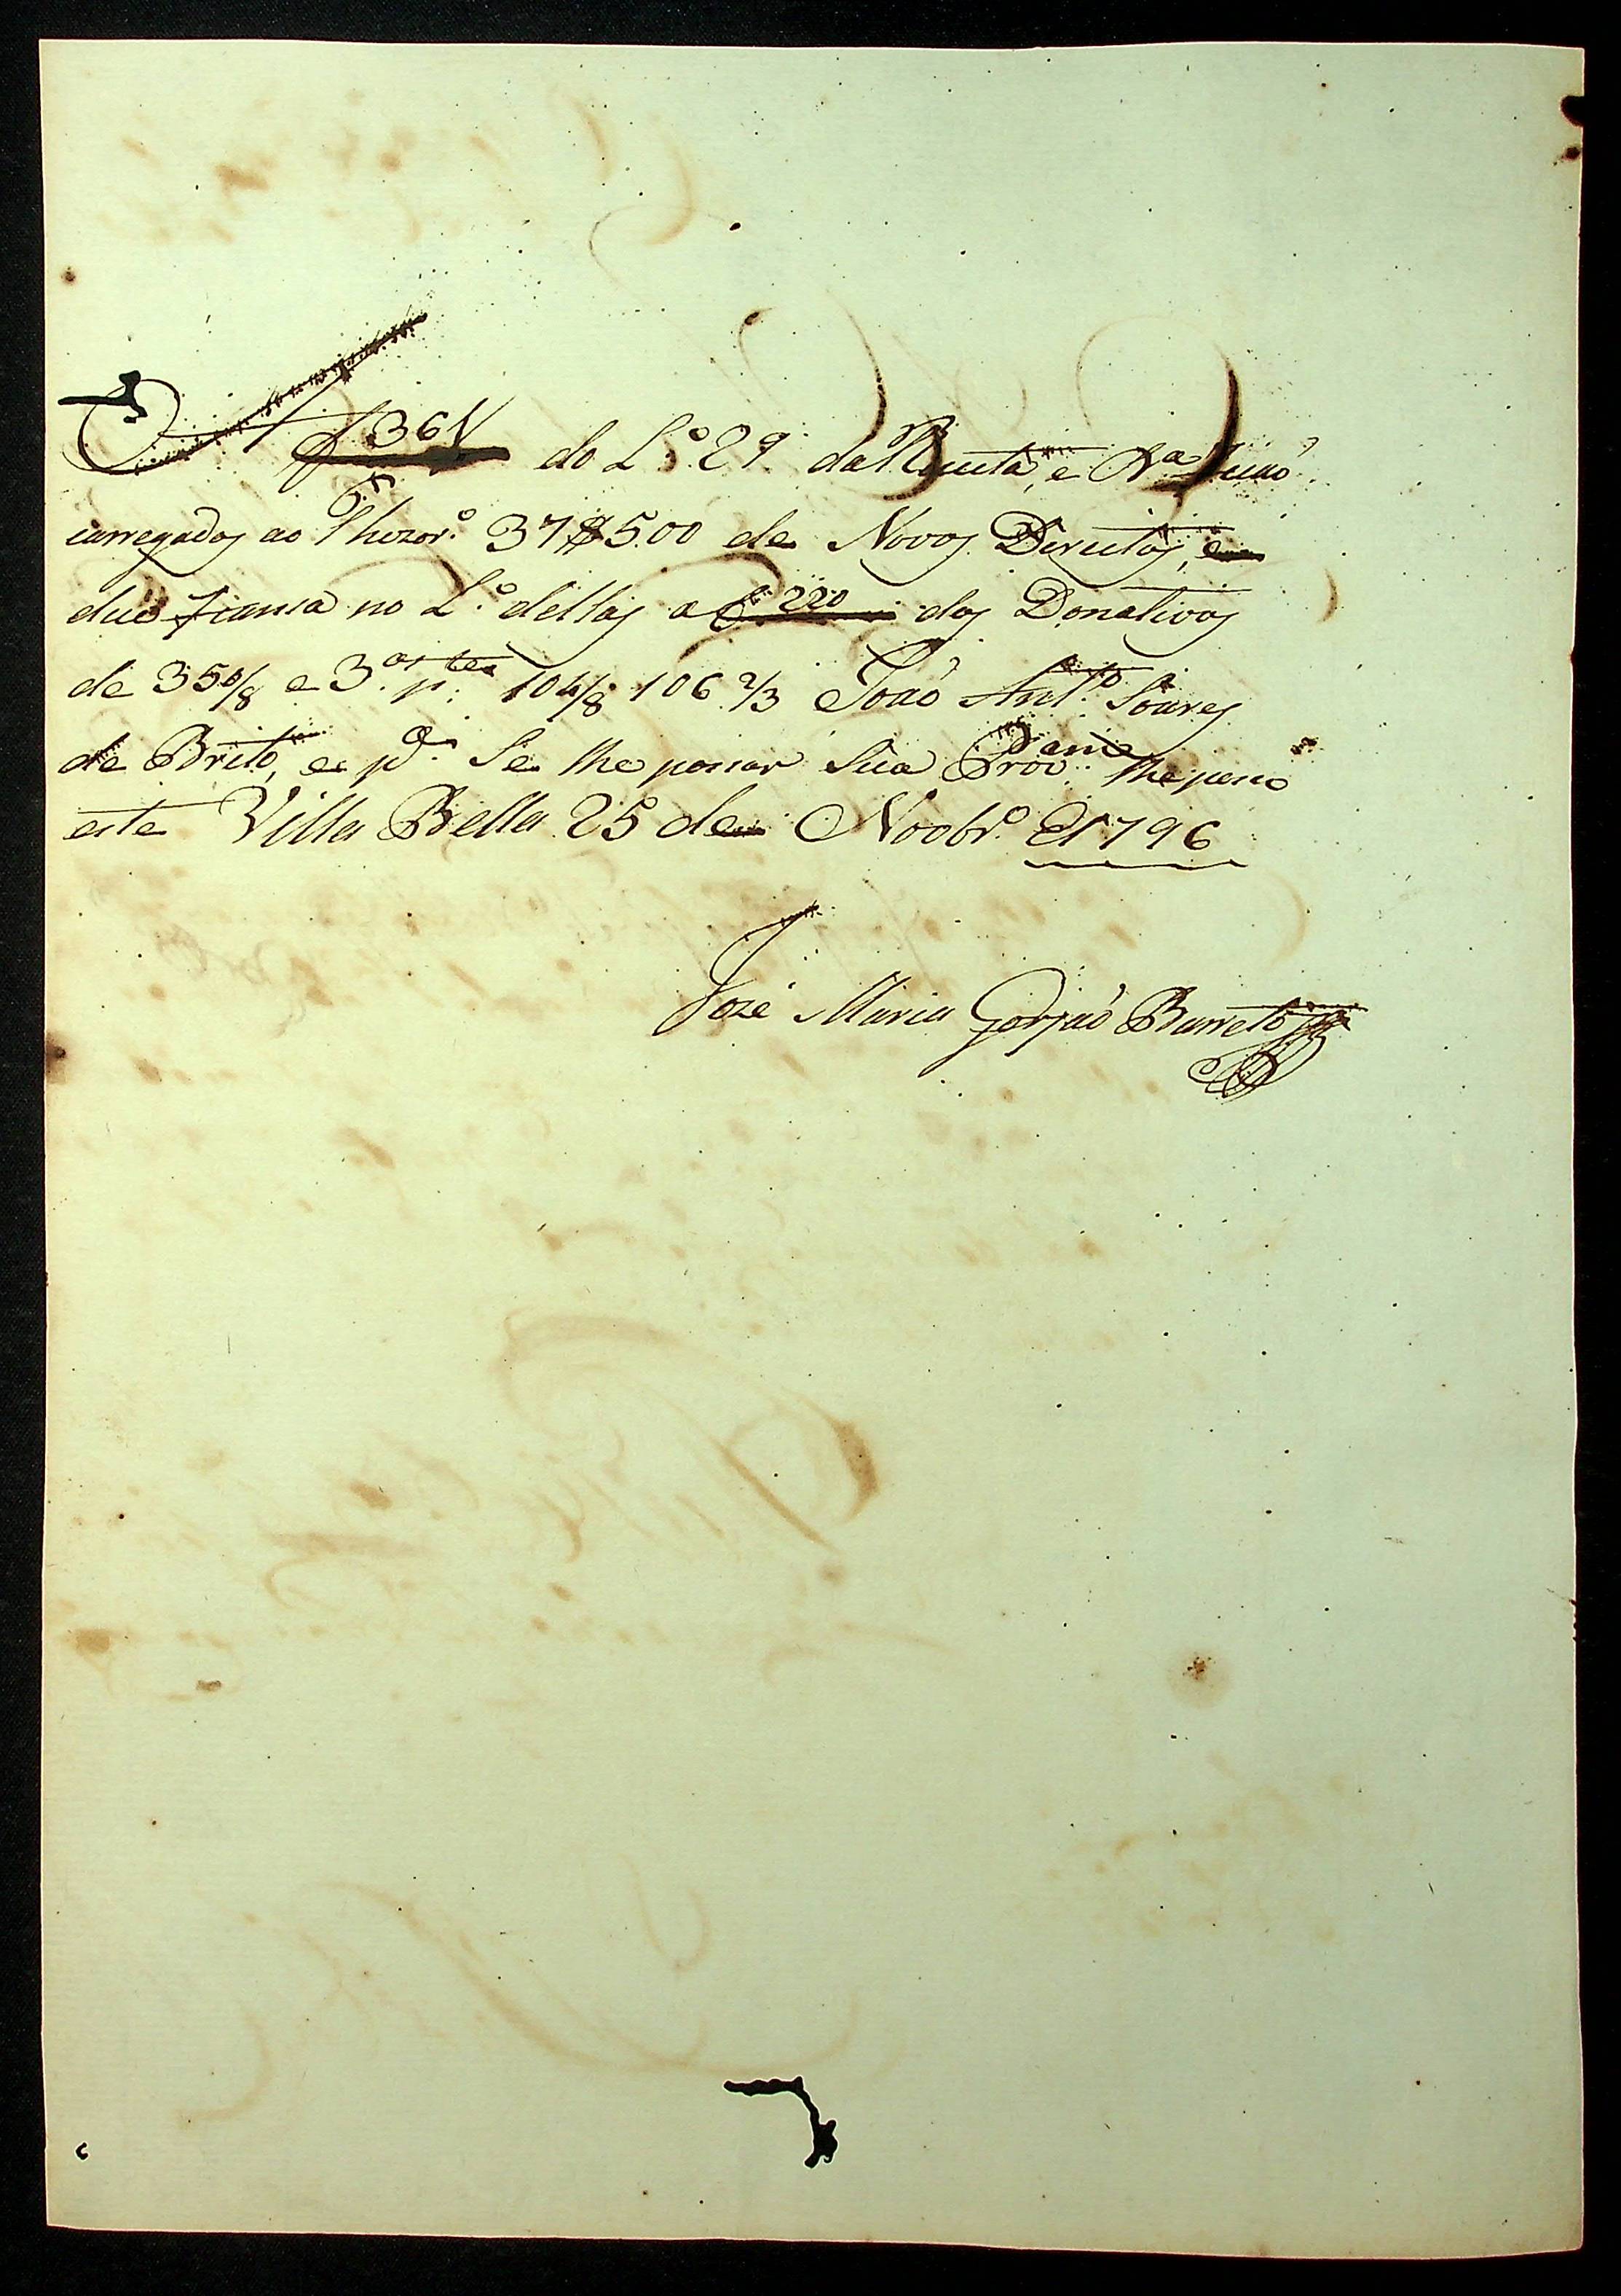 A f 36V do L.º 29 da Receita, e N.ª ficaó
carregados ao Thezor.º 37$500 de Novos Direitos, e
deo fiansa no L.º dellas a f 220 dos Donativos
de 350/8 e 3.as p.tes 104/8 106 2/3 Joaó Ant.º Soares
de Brito, e p.ª Se lhe passar Sua Prov.am lhe passo
este Villa Bella 25 de Novbr.º d1796
Jozé Maria Gorjaó Barreto